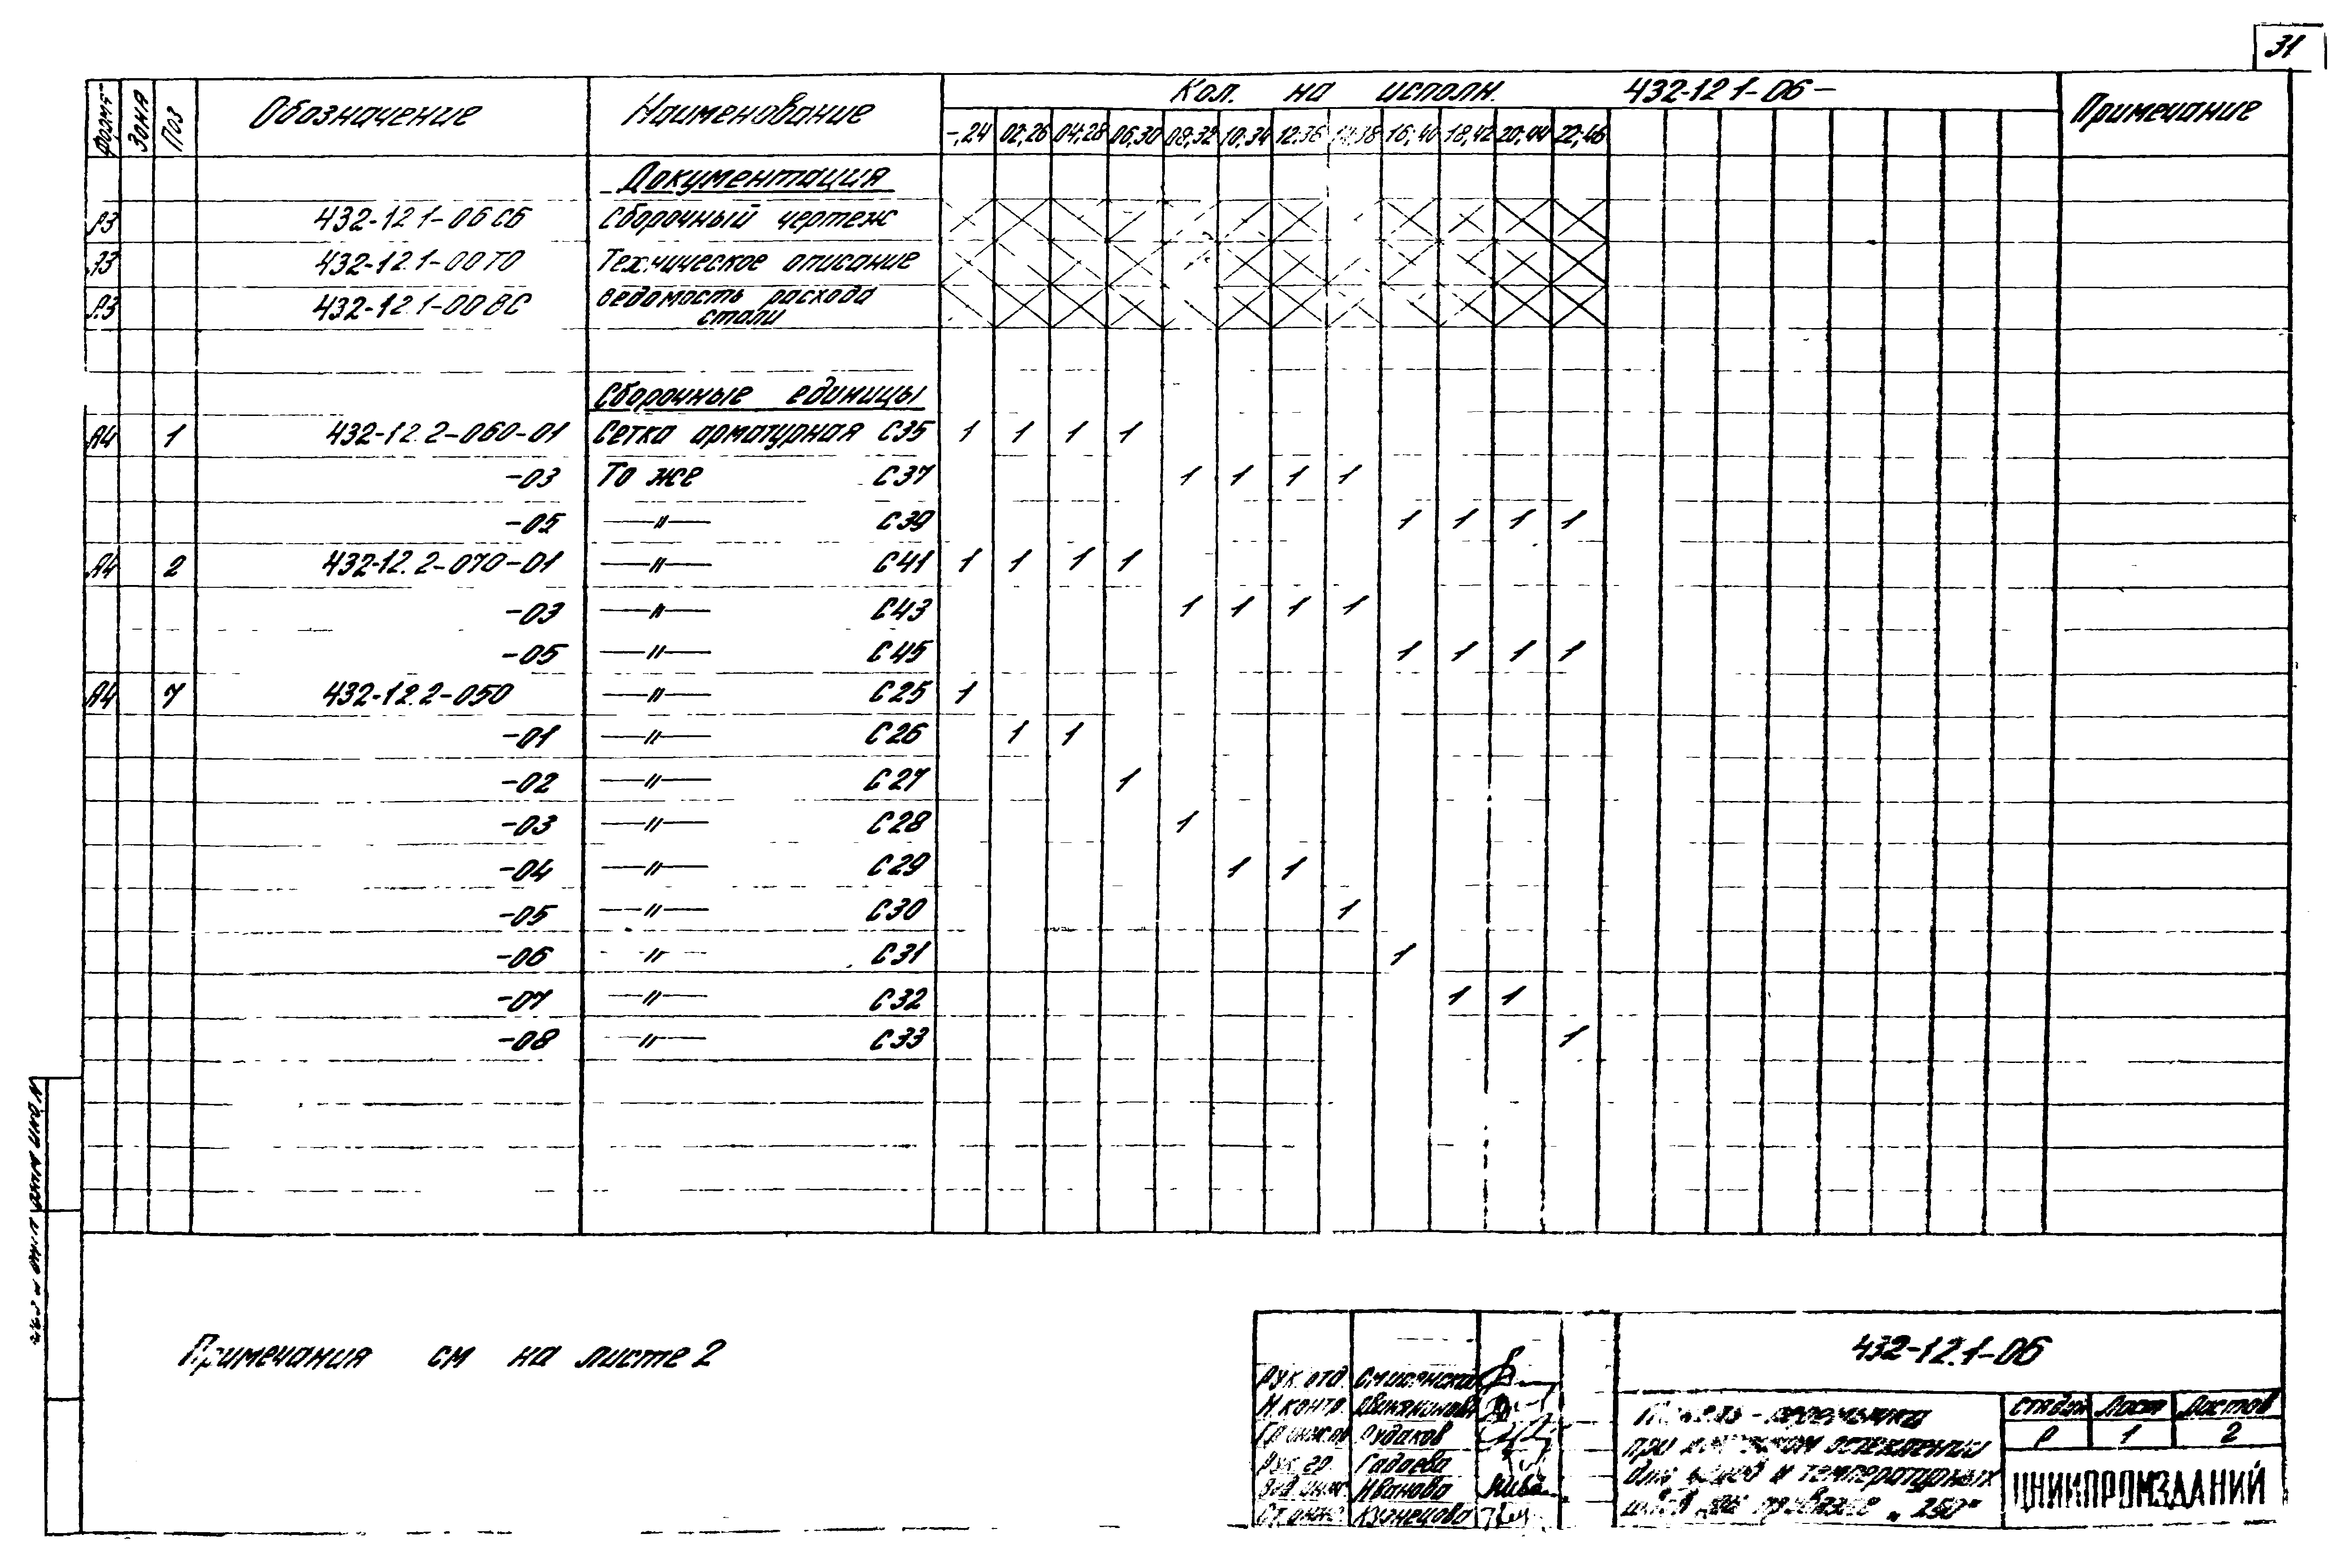 31
Формт Зона Поз Обозначение Наименование Кол. на исполн. 432-12 1-06- Примечание
-,24 02;26 04;28 06;30 08;32 10;34 12;36 14;38 16;40 18;42 20;44 22;46
Документация
А3 432-12 1-06 СБ Сборочный чертеж
А3 432-12.1-00 ТО Техническое описание
А3 432-12.1-00 ВС Ведомость расхода
стали
Сборочные единицы
А4 1 432-12.2-060-01 Сетка арматурная С35 1 1 1 1
-03 То же С37 1 1 1 1
-05 —"— С39 1 1 1 1
А4 2 432-12.2-070-01 —"— С41 1 1 1 1
-03 —"— С43 1 1 1 1
-05 —"— С45 1 1 1 1
А4 7 432-12.2-050 —"— С25 1
-01 —"— С26 1 1
-02 —"— С27 1
-03 —"— С28 1
-04 —"— С29 1 1
-05 —"— С30 1
-06 —"— С31 1
-07 —"— С32 1 1
-08 —"— С33 1
Примечания см на листе 2
432-12.1-06
Рук. отд.
Н. контр.
Рудаков
Рук. гр. Гадаева
Иванова
Кузнецова
при остеклении
для и температурных
привязке "250"
Стадия Лист Листов
Р 1 2
ЦНИИПРОМЗДАНИЙ